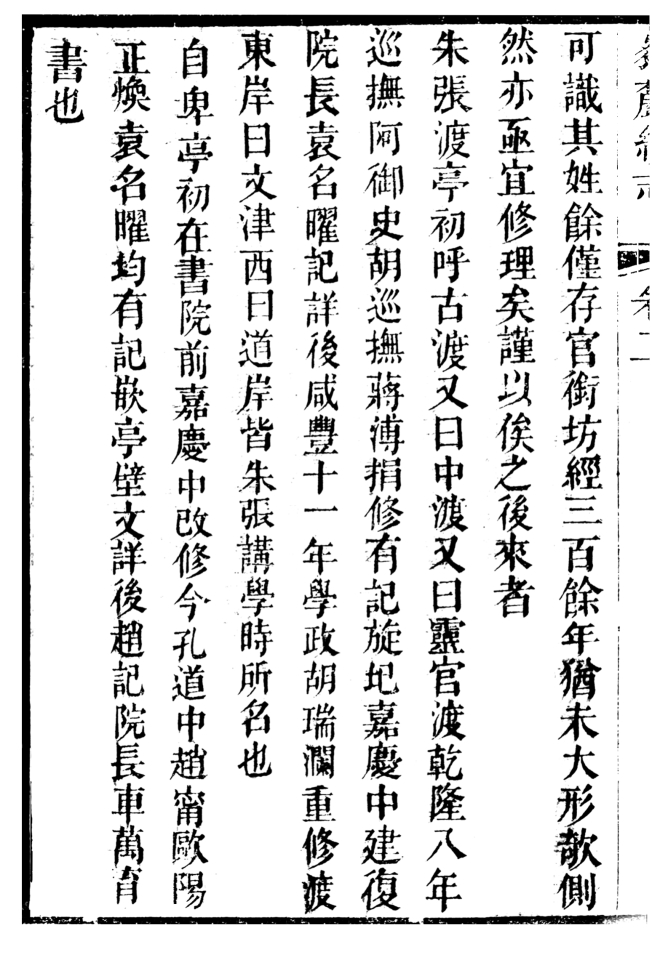 卷二
可識其姓餘僅存官銜坊經三百餘年猶未大形欹側
然亦亟宜修理矣謹以俟之後來者
朱張渡亭初呼古渡又曰中渡又曰靈官渡乾隆八年
巡撫阿御史胡巡撫蔣溥捐修有記旋圮嘉慶中建復
院長袁名曜記詳後咸豐十一年學政胡瑞瀾重修渡
東岸曰文津西曰道岸皆朱張講學時所名也
自卑亭初在書院前嘉慶中改修今孔道中趙甯歐陽
正煥袁名曜均有記嵌亭壁文詳後趙記院長車萬育
書也